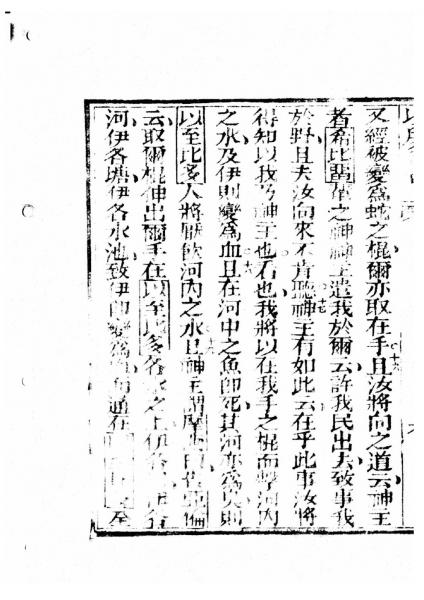 又經破變爲蛇之棍爾亦取在手且汝將向之道云神主
者希比畱輩之神神主遣我於爾云許我民出去致事我
於野且夫汝向來不肯聽神主有如此云在乎此事汝將
得知以我乃神主也看也我將以在我手之棍而擊河內
之水及伊則變爲血且在河中之魚即死其河亦爲臭則
以至比多人將厭飲河內之水且神主謂摩西曰倫
云取爾棍伸出爾手在以至比多各水之上伊各
河伊各塘伊各水池致伊即變爲在